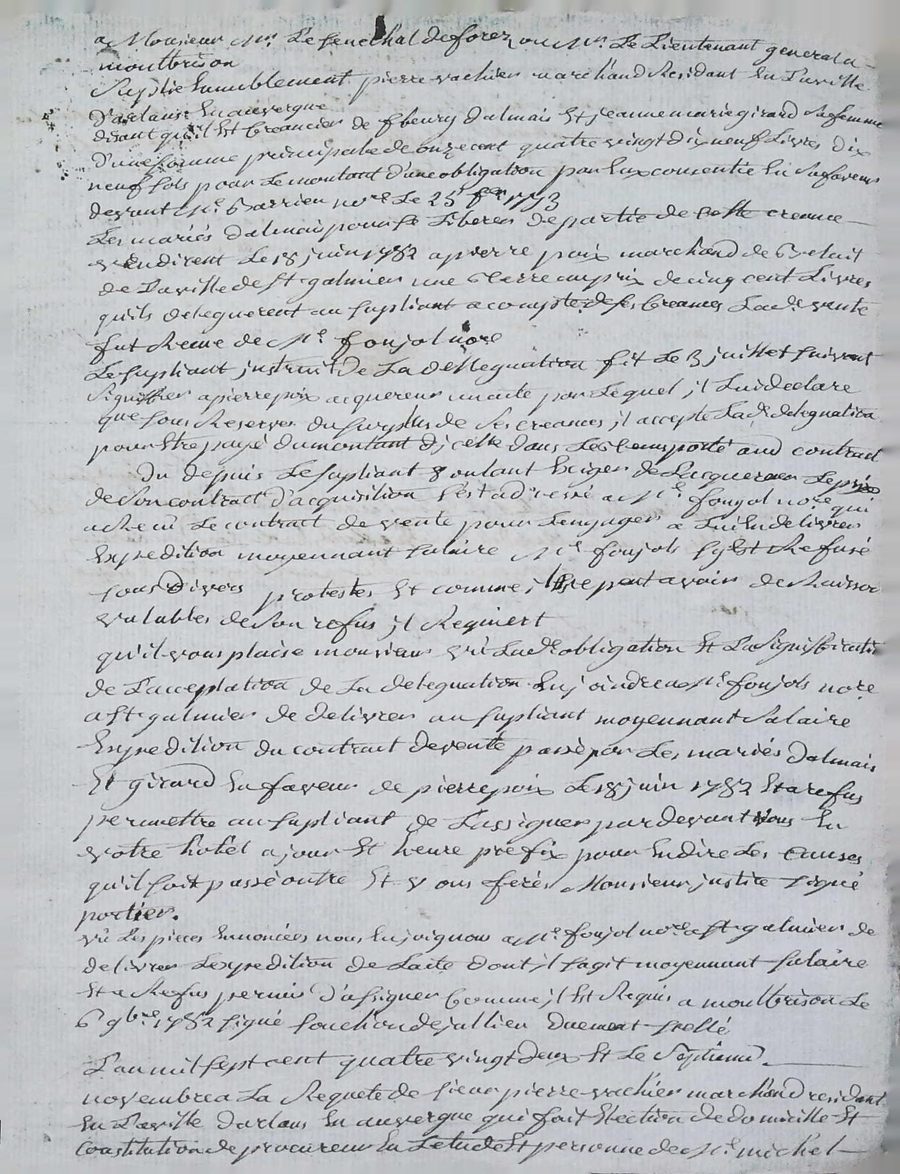 a Monsieur Mr. Le senechal de forez ou Mr. Le Lieutenant general a
montbrison
Suplie humblement pierre vachier marchand Residant En La ville
D'arlanc En auvergne
disant qu'il Est Creancier de fleury Dalmais Et jeanne marie girard Sa femme
D'une somme principale de onze cent quatre vingt dix neuf Livres Dix
neuf sols pour Le montant d'une obligation par Eux consentie En sa faveur
devant Me. Barrieu nore Le 25 1773
Les mariés dalmais pour se Liberer de partie de Cette creance
vendirent Le 18 juin 1782 a pierre poix marchand de
de La ville de St. galmier une terre au prix de cinq cent Livres
qu'ils deleguerent au supliant a compte de ses Creances La de. vente
fut Recue de Me. foujol nore
Le supliant instruit de La dellegation fit Le 3 juillet suivant
Signifier a pierre poix acquereur un acte par Lequel il Lui declare
que sous Reserves du surplus de Ses creances il accepte La de. delegation
pour Etre payé du montant d'icelle dans Les tems porté aud contract
Du depuis Le supliant voulant Exiger de L'acquereur Le prix
de Son contract d'acquisition s'est adressé a Me. foujol nore qui
a Recu Le contract de vente pour L'engager a Lui En delivrer
Expedition moyennant salaire Me. foujols s'y Est Refusé
sous Divers protestes Et comme il ne peut avoir de Raison
valables de Son refus il Requiert
qu'il vous plaise monsieur vû La de. obligation Et La Signification
de L'acceptation de La delegation Enjoindre a Me. foujols nore
a St. galmier de delivrer au supliant moyennant Salaire
Expedition du contract de vente passé par Les mariés Dalmais
Et girard En faveur de pierre poix Le 18 juin 1782 Et a refus
permettre au supliant de L'assigner par devant Vous En
votre hotel a jour Et heure prefix pour En dire Les Causes
qu'il soit passé outre Et vous ferés Monsieur justice signé
portier.
vû Les pieces Ennoncées nous Enjoignons a Me. foujol nore a St. galmier de
delivrer L'expedition de L'acte dont il s'agit moyennant salaire
Et a Refus permis D'assigner Comme il Est Requis a montbrison Le
6 9bre. 1782 signé souchon dejullien Duement scellé
L'an mil sept cent quatre vingt deux Et Le Septieme
novembre a La Requete de sieur pierre vachier marchand residant
En La ville Darlanc En auvergne qui fait Election de domicille Et
Constitution de procureur En L'etude Et personne de Me. michel